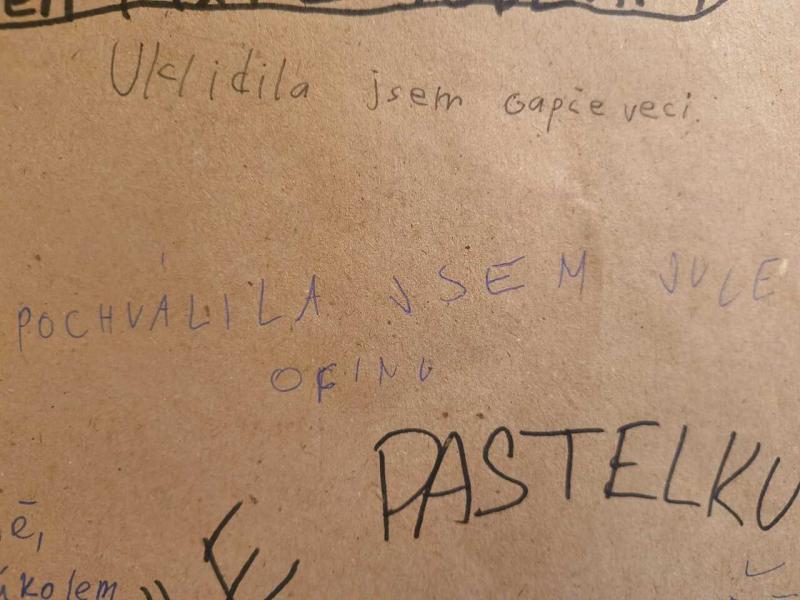 Uklidila jsem oapče veci.
POCHVÁLILA JSEM JULE
OFINU
PASTELKU
ě,
úkolem